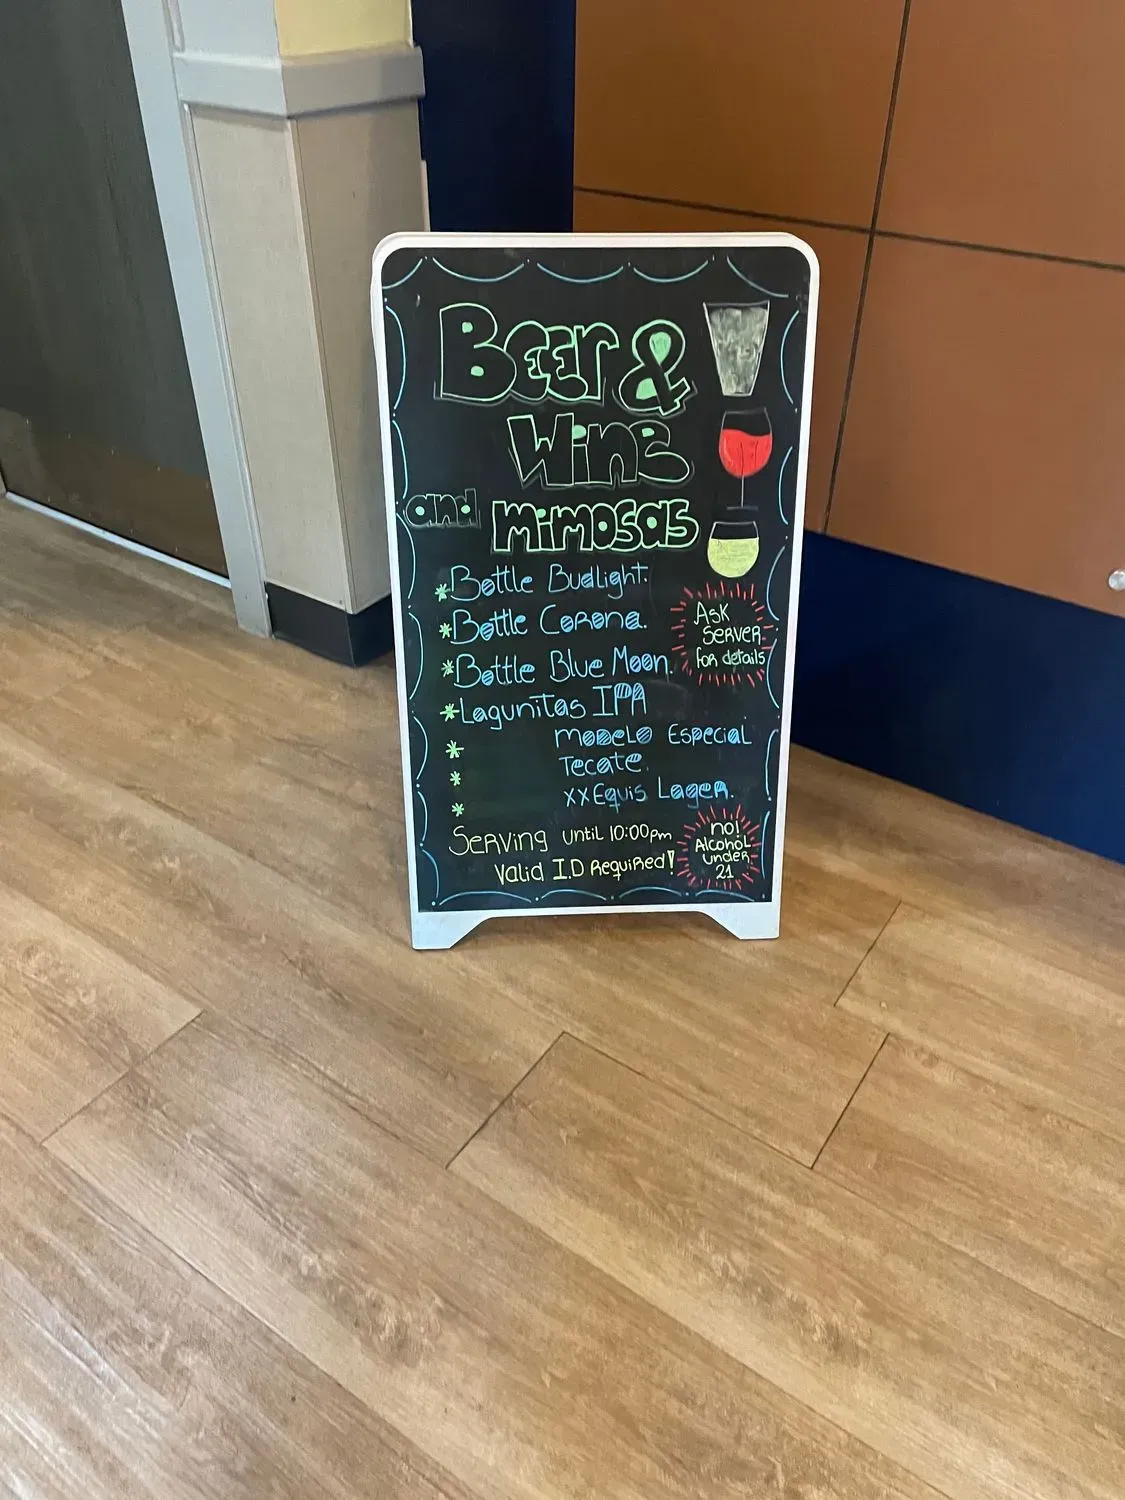 Beer &
Wine
and mimosas
*Bottle Budlight.
*Bottle Corona.
*Bottle Blue Moon.
*Lagunitas IPA
* Modelo Especial
* Tecate.
* XX Equis Lager.
Ask
Server
for details
Serving until 10:00pm
Valid I.D Required!
no!
Alcohol
under
21